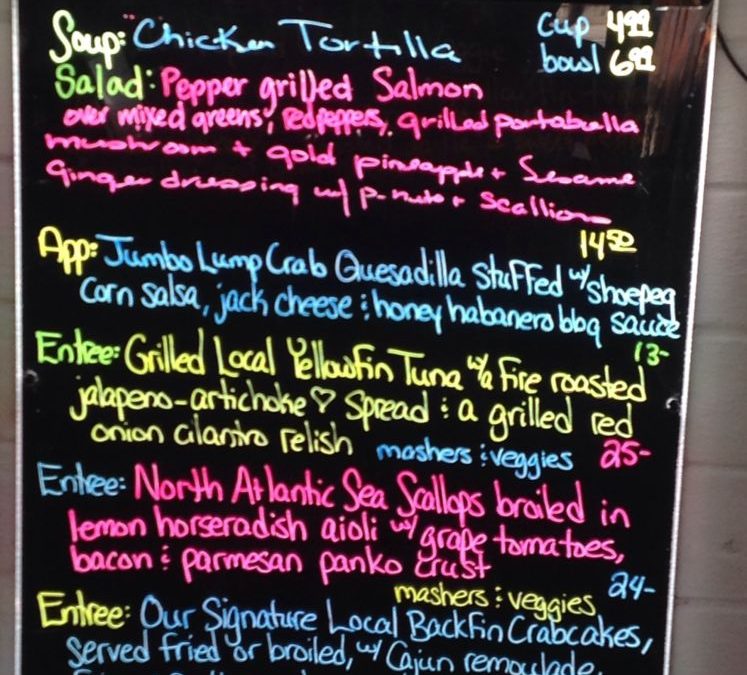 Soup: Chicken Tortilla cup 4.99
bowl 6.99
Salad: Pepper grilled Salmon
over mixed greens, red peppers, grilled portabella
mushroom + gold pineapple + Sesame
Ginger dressing w/ p-nuts + scallions
14.50
App: Jumbo Lump Crab Quesadilla Stuffed w/ shoepeg
corn salsa, jack cheese & honey habanero bbq sauce
13-
Entree: Grilled Local Yellowfin Tuna w/a fire roasted
jalapeno-artichoke ♡ Spread & a grilled red
onion cilantro relish mashers & veggies 25-
Entree: North Atlantic Sea Scallops broiled in
lemon horseradish aioli w/ grape tomatoes,
bacon & parmesan panko crust
mashers & veggies 24-
Entree: Our Signature Local Backfin Crabcakes,
Served fried or broiled, w/ Cajun remoulade,